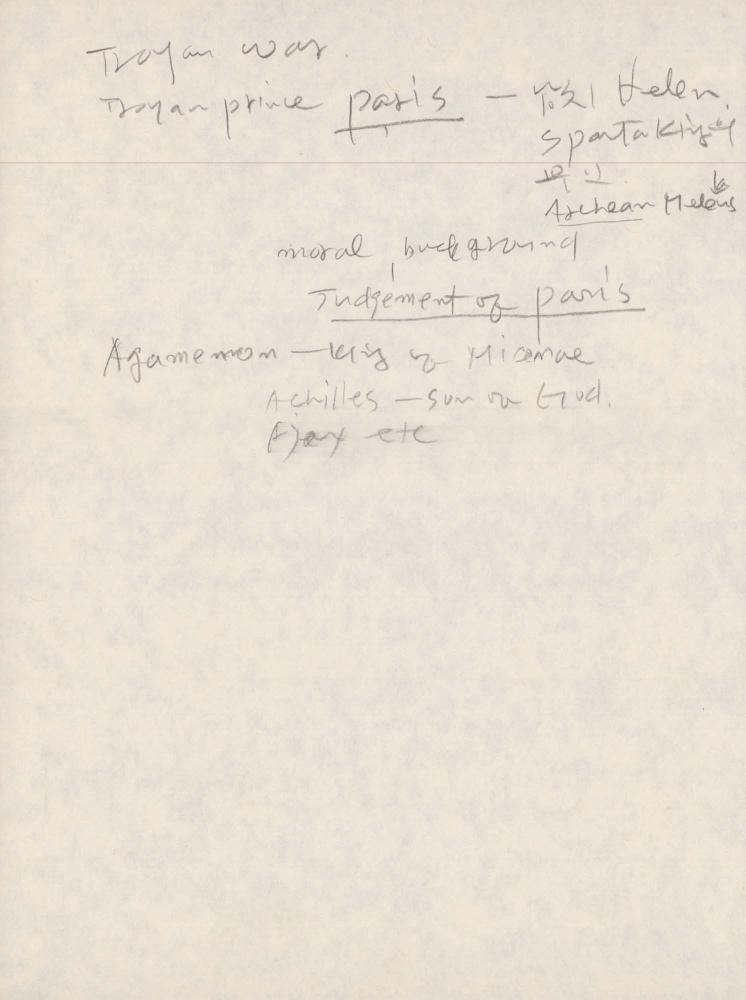 Troyan war.
Troyan prince paris — 납치 Helen,
Sparta King의
Archean Melaus
moral background
Judgement of paris
Agamemnon — King of Micenae
Achilles — son of God.
Ajax etc